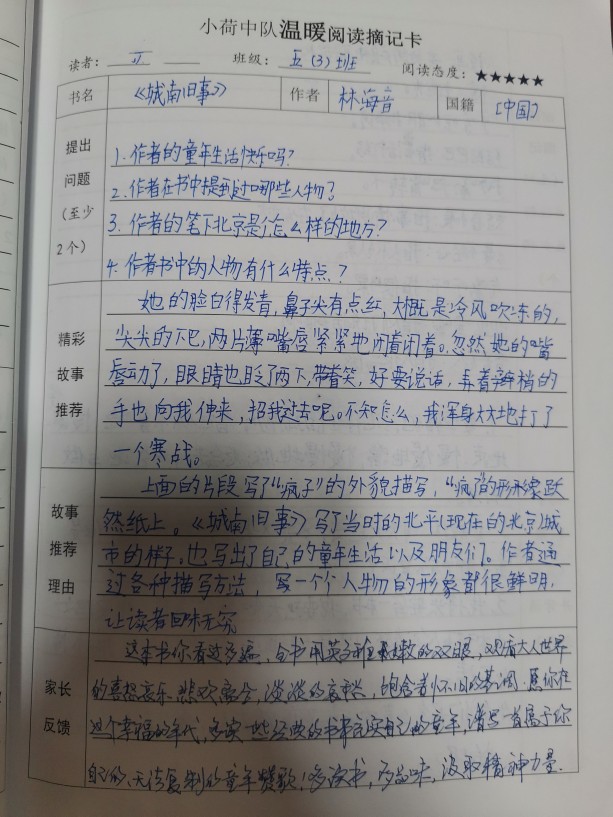 小荷中队温暖阅读摘记卡
读者： 班级：五（3）班 阅读态度：★★★★★
书名 《城南旧事》 作者 林海音 国籍 [中国]
提出问题（至少2个）
1.作者的童年生活快乐吗？
2.作者在书中提到过哪些人物？
3.作者的笔下北京是怎么样的地方？
4.作者书中的人物有什么特点？
精彩故事推荐
她的脸白得发青，鼻子尖有点红，大概是冷风吹冻的，
尖尖的下巴，两片薄嘴唇紧紧地闭着闭着。忽然她的嘴
唇动了，眼睛也眨了两下，带着笑，好要说话，弄着辫梢的
手也向我伸来，招我过去呢。不知怎么，我浑身大大地打了
一个寒战。
故事推荐理由
上面的片段写了“疯子”的外貌描写，“疯子”的形象跃
然纸上。《城南旧事》写了当时的北平（现在的北京）城
市的样子。也写出了自己的童年生活以及朋友们。作者通
过各种描写方法，写一个个人物的形象都很鲜明，
让读者回味无穷
家长反馈
这本书你看过多遍，全书用英子的双眼，观看大人世界
的喜怒哀乐 悲欢离合，淡淡的哀愁，饱含着怀旧的基调。愿你在
这个幸福的年代，多读一些经典的书来充实自己的童年，谱写一首属于你
自己的、无法复制的童年赞歌！多读书，多品味，汲取精神力量.